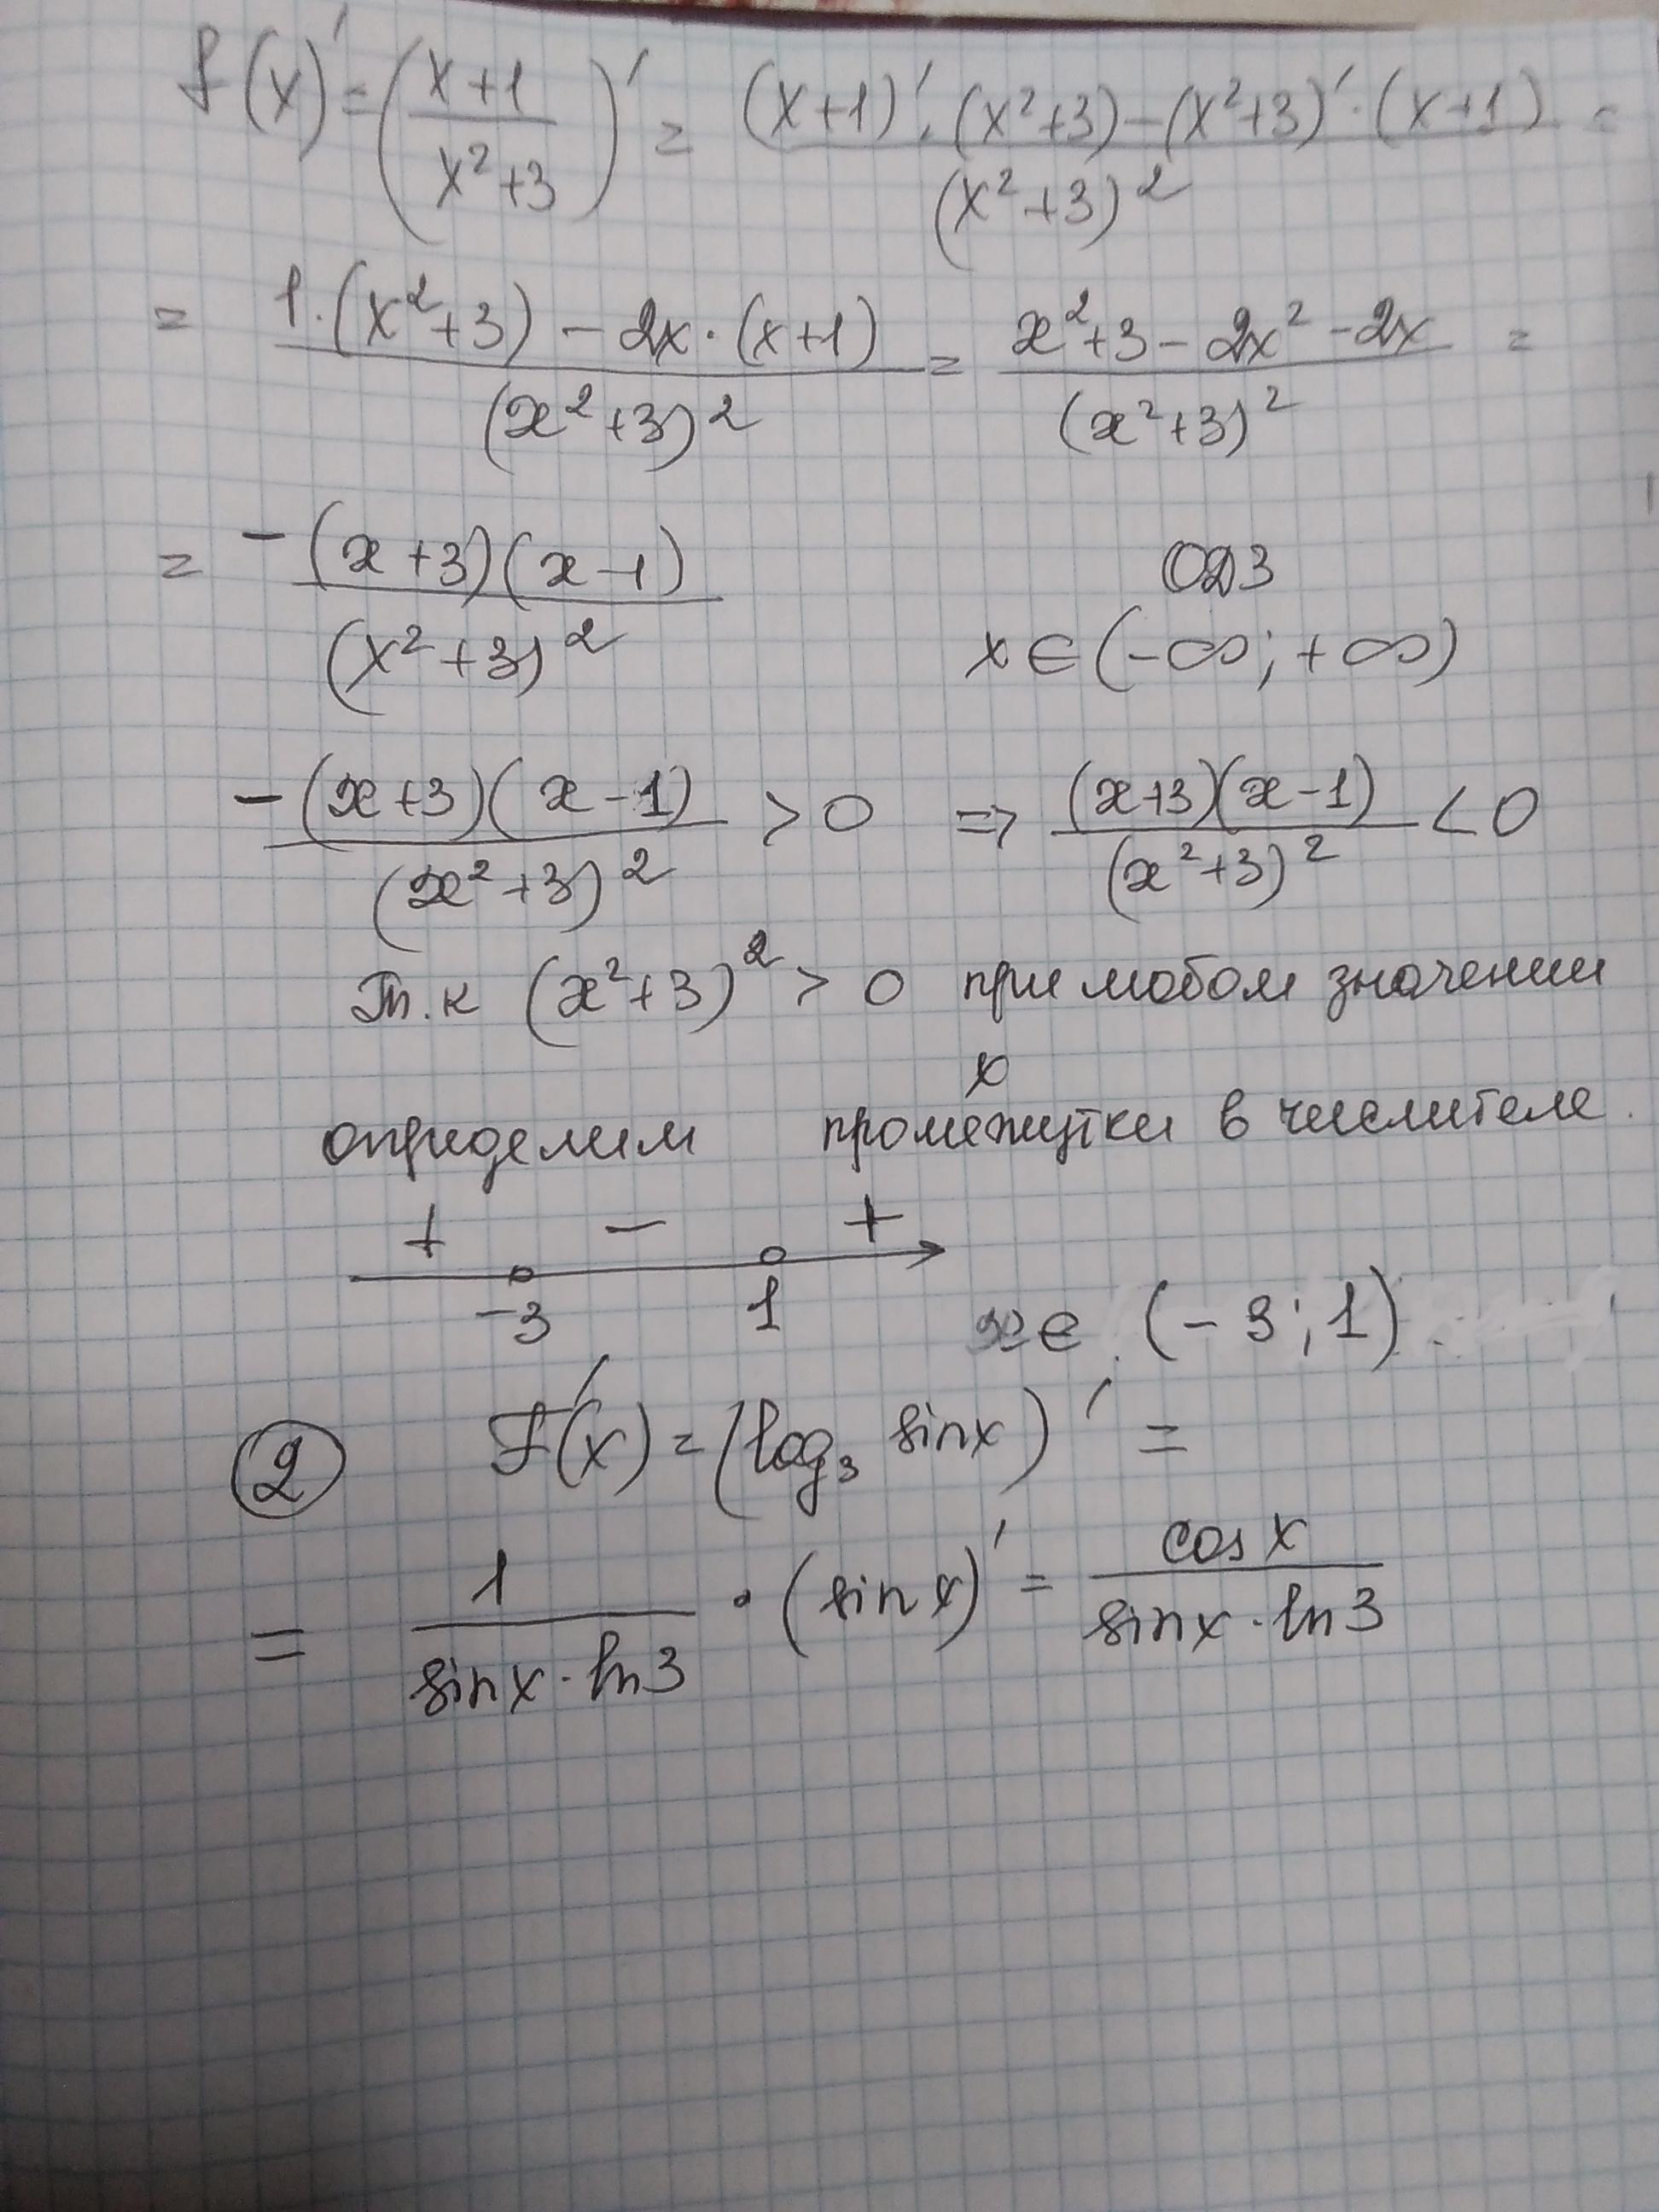 f(x)' = ((x+1)/(x²+3))' = ((x+1)'·(x²+3)-(x²+3)'·(x+1))/(x²+3)² =
= (1·(x²+3)-2x·(x+1))/(x²+3)² = (x²+3-2x²-2x)/(x²+3)² =
= -(x+3)(x-1)/(x²+3)² ОДЗ
x∈(-∞;+∞)
-(x+3)(x-1)/(x²+3)² > 0 => (x+3)(x-1)/(x²+3)² < 0
Т.к (x²+3)² > 0 при любом значении
x
определим промежутки в числителе.
+ - +
-3 1 x∈ (-3;1)
2 F'(x) = (log₃ sinx)' =
= 1/(sinx·ln3) · (sinx)' = cosx/(sinx·ln3)